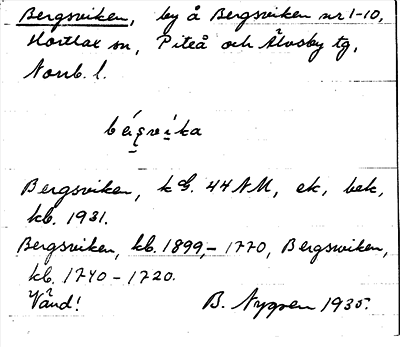 Bergsviken, by å Bergsviken nr 1-10,
Hortlax sn, Piteå och Älvsby tg,
Norrb. l.
Bergsviken, k G. 44 NM, ek, bek,
kb. 1931.
Bergsviken, kb. 1899,- 1770, Bergswiken,
kb. 1740 - 1720.
Vänd! B. Nygren 1935.